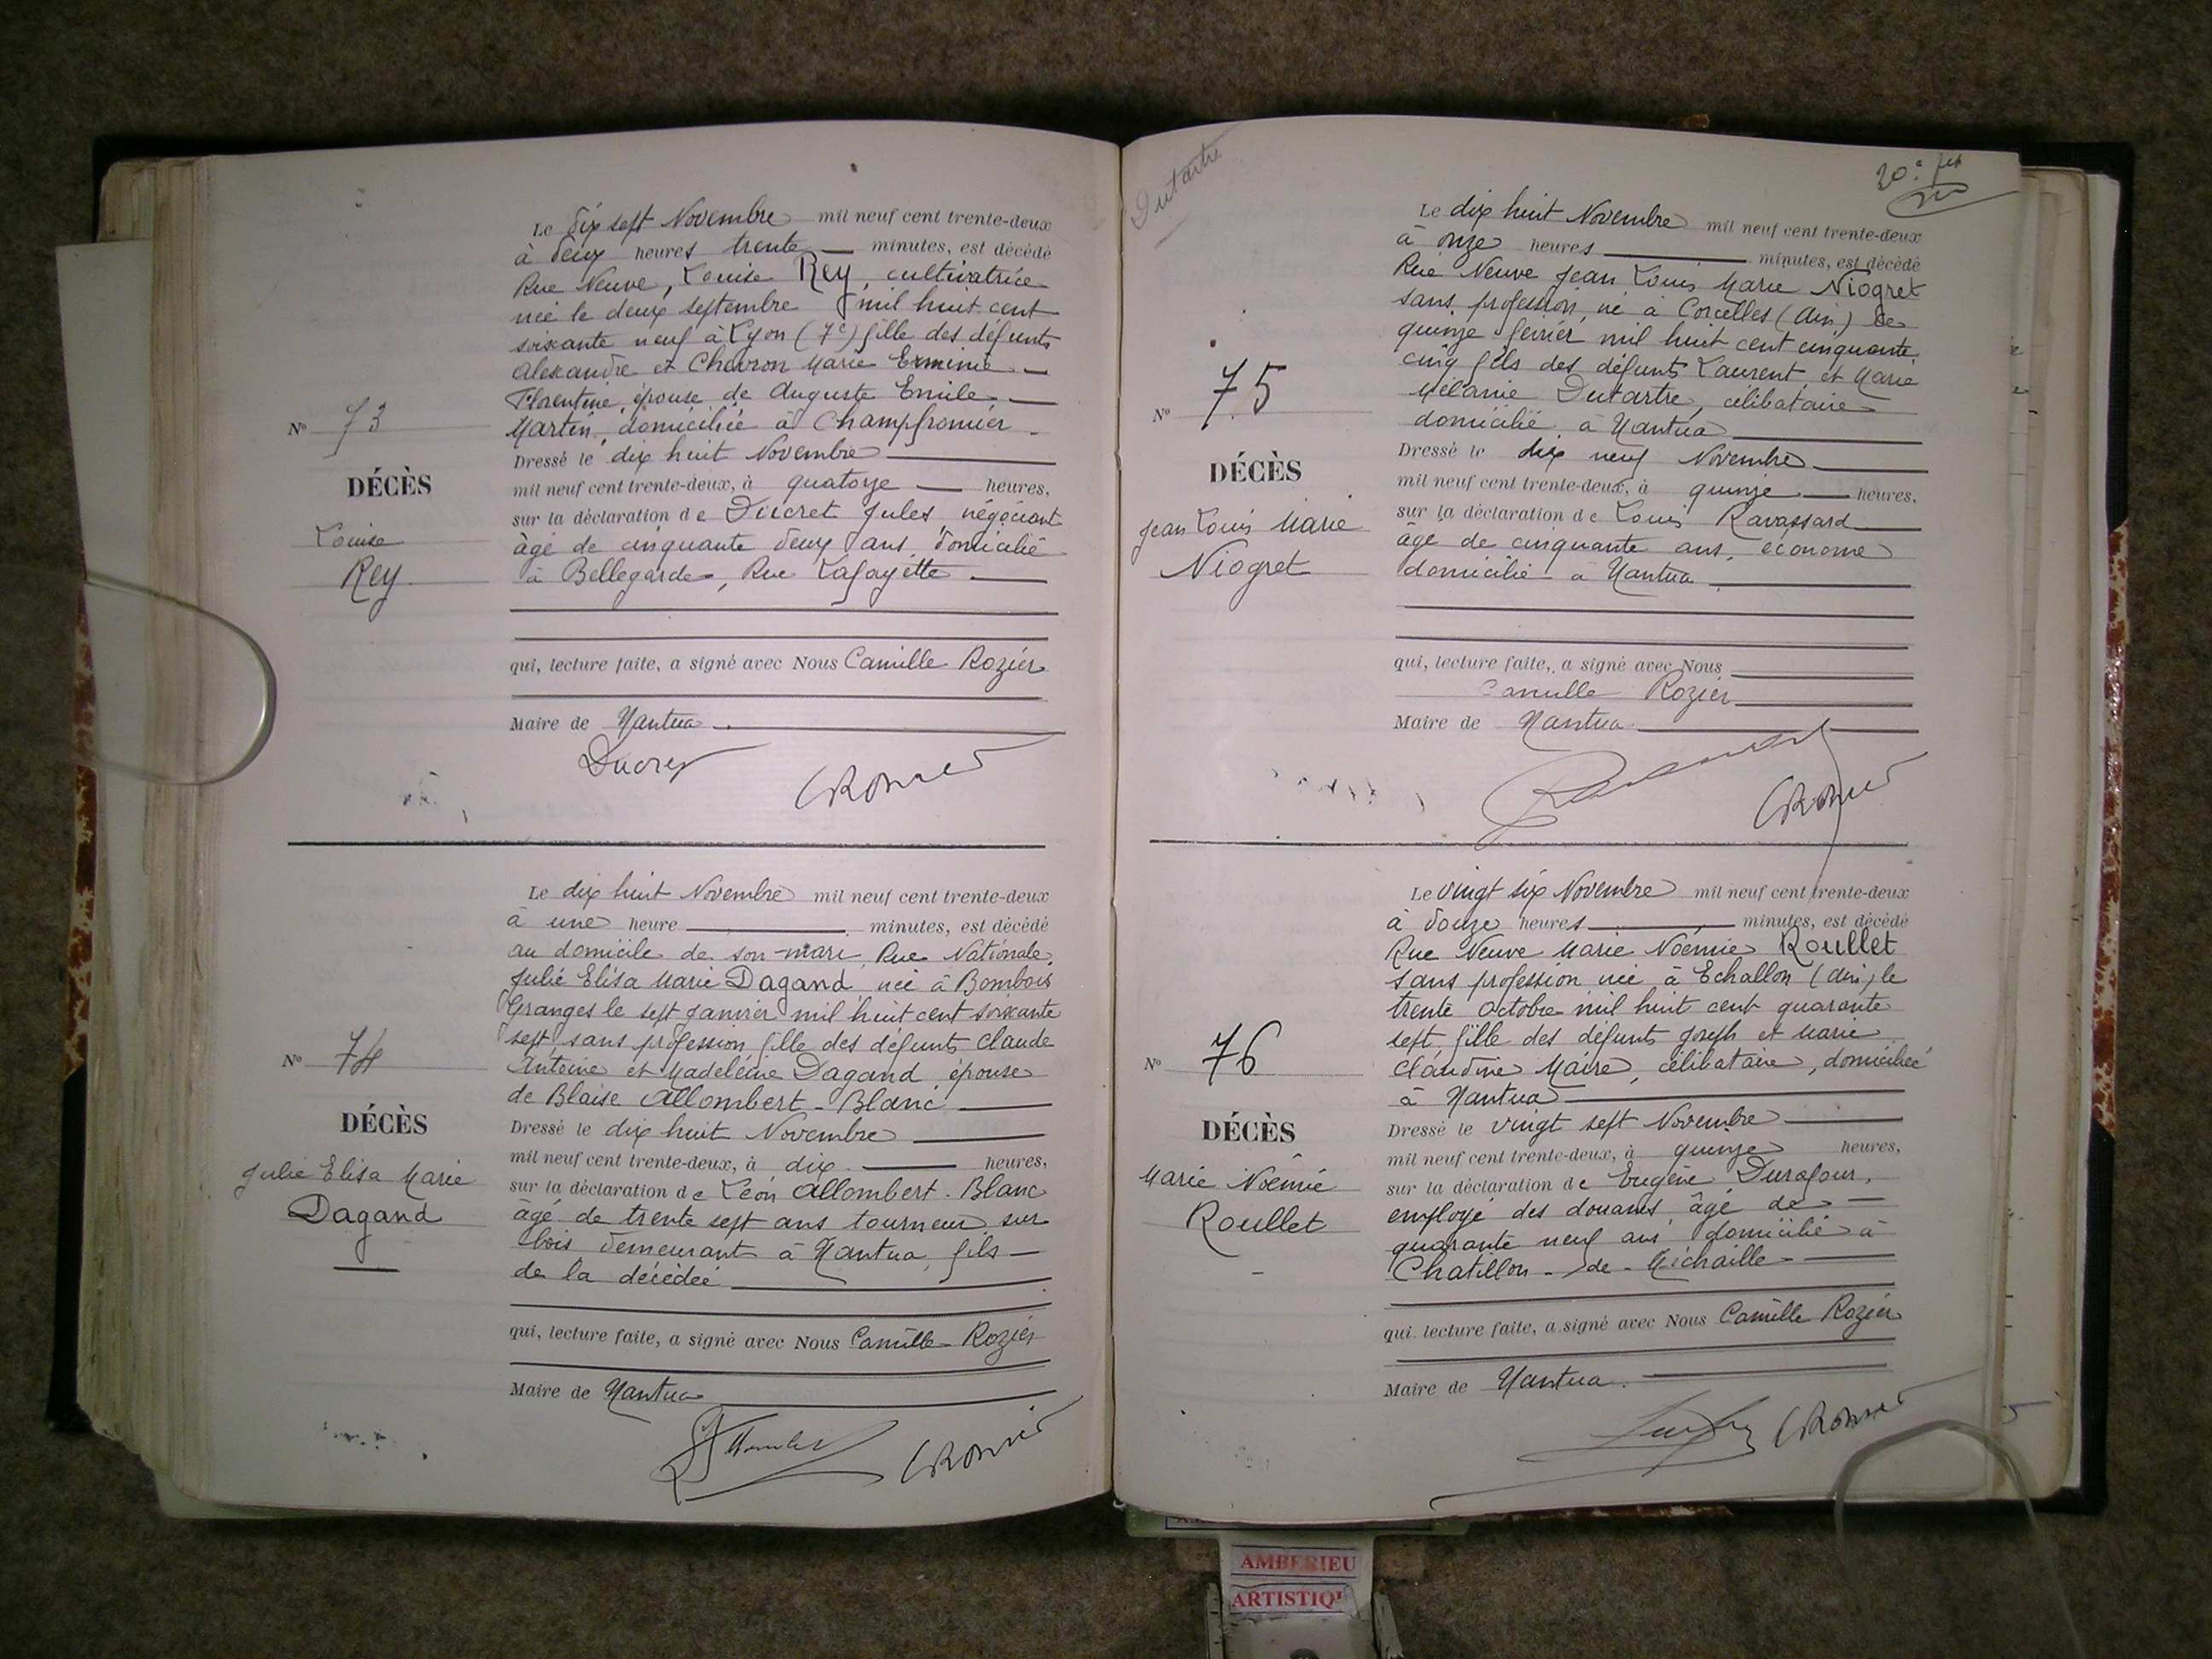 Le dix sept Novembre mil neuf cent trente-deux
à deux heures trente minutes, est décédé
Rue Neuve, Louise Rey, cultivatrice
née le deux septembre mil huit cent
soixante neuf à Lyon (7e) fille des défunts
Alexandre et Chevron Marie Erminie
Florentine, épouse de Auguste Emile
Martin, domiciliée à Champfromier
Dressé le dix huit Novembre
mil neuf cent trente-deux, à quatorze heures,
sur la déclaration de Ducret Jules, négociant
âgé de cinquante deux ans, domicilié
à Bellegarde, Rue Lafayette
qui, lecture faite, a signé avec Nous Camille Rozier
Maire de Nantua
Ducret
CRozier
No 73
DÉCÈS
Louise
Rey
Le dix huit Novembre mil neuf cent trente-deux
à une heure minutes, est décédé
au domicile de son mari, Rue Nationale,
Julie Elisa Marie Dagand, née à
Granges le sept Janvier mil huit cent soixante
sept, sans profession fille des défunts Claude
Antoine et Madeleine Dagand, épouse
de Blaise Allombert-Blanc
Dressé le dix huit Novembre
mil neuf cent trente-deux, à dix heures,
sur la déclaration de Léon Allombert-Blanc
âgé de trente sept ans tourneur sur
bois demeurant à Nantua, fils
de la décédée
qui, lecture faite, a signé avec Nous Camille Rozier
Maire de Nantua
CRozier
No 74
DÉCÈS
Julie Elisa Marie
Dagand
Dutartre
20e
Le dix huit Novembre mil neuf cent trente-deux
à onze heures minutes, est décédé
Rue Neuve Jean Louis Marie Niogret
sans profession, né à Corcelles (Ain) le
quinze février mil huit cent cinquante
cinq fils des défunts Laurent et Marie
Mélanie Dutartre, célibataire
domicilié à Nantua
Dressé le dix neuf Novembre
mil neuf cent trente-deux, à quinze heures,
sur la déclaration de Louis Ravassard
âgé de cinquante ans, économe
domicilié à Nantua
qui, lecture faite, a signé avec Nous
Camille Rozier
Maire de Nantua
CRozier
No 75
DÉCÈS
Jean Louis Marie
Niogret
Le vingt six Novembre mil neuf cent trente-deux
à douze heures minutes, est décédé
Rue Neuve Marie Noémie Roullet
sans profession née à Echallon (Ain) le
trente octobre mil huit cent quarante
sept fille des défunts Joseph et Marie
Claudine Maire, célibataire, domiciliée
à Nantua
Dressé le vingt sept Novembre
mil neuf cent trente-deux, à quinze heures,
sur la déclaration de Eugène Durafour,
employé des douanes, âgé de
quarante neuf ans domicilié à
Chatillon-de-Michaille
qui, lecture faite, a signé avec Nous Camille Rozier
Maire de Nantua
CRozier
No 76
DÉCÈS
Marie Noémie
Roullet
AMBERIEU
ARTISTIQU